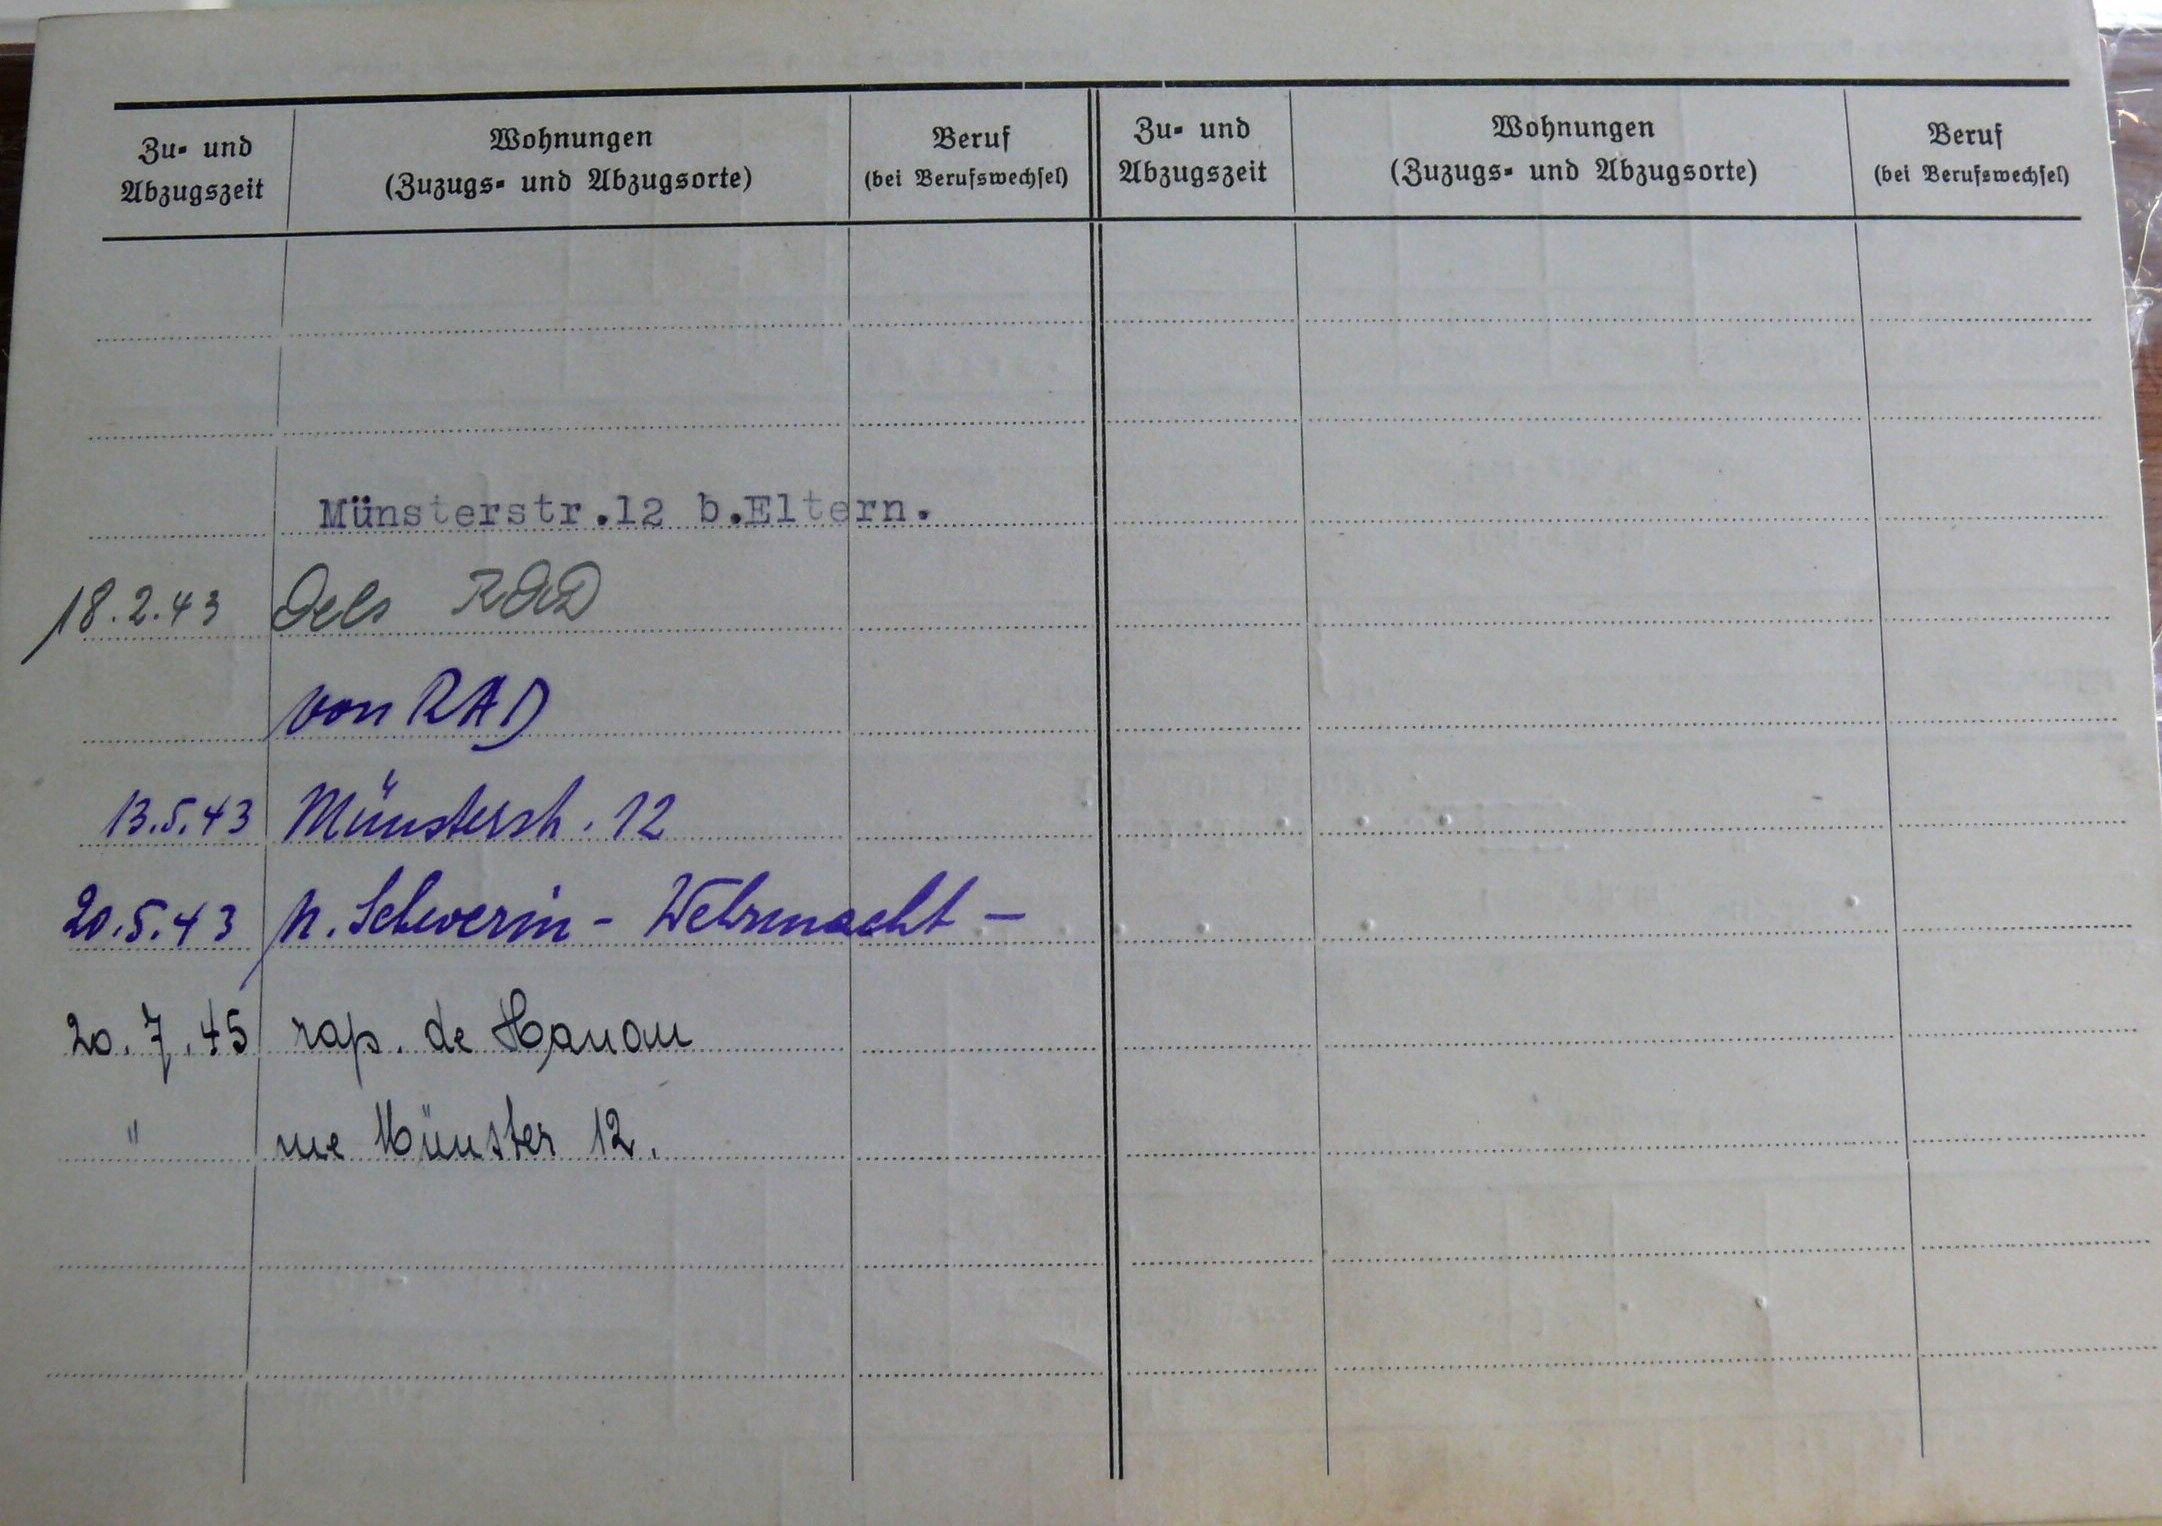 Zu- und Abzugszeit
Wohnungen
(Zuzugs- und Abzugsorte)
Beruf
(bei Berufswechsel)
Zu- und Abzugszeit
Wohnungen
(Zuzugs- und Abzugsorte)
Beruf
(bei Berufswechsel)
Münsterstr.12 b.Eltern.
18.2.43 Oels RAD
von RAD
13.5.43 Münsterstr. 12
20.5.43 n. Schwerin - Wehrmacht -
20.7.45 rap. de Hanau
" rue Münster 12.